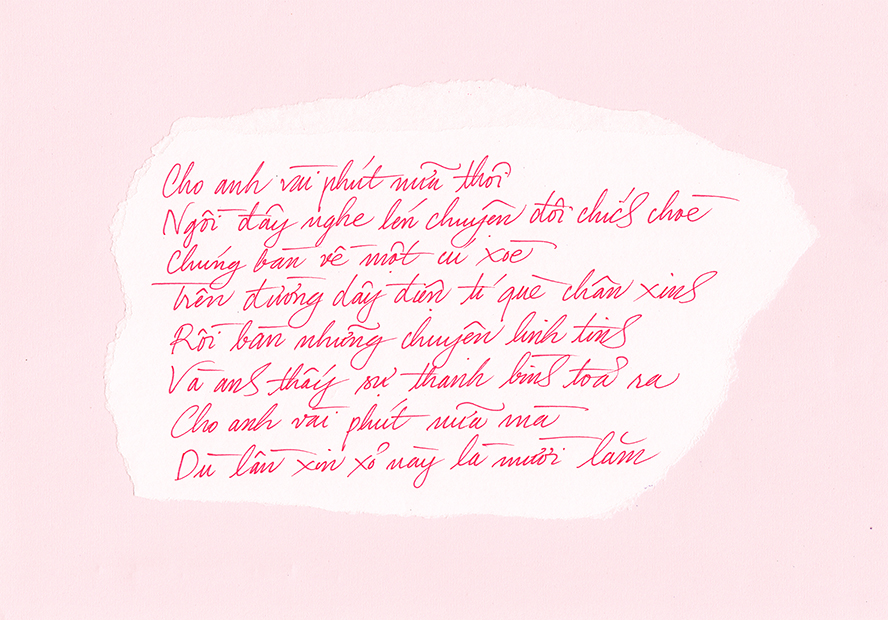 Cho anh vài phút nữa thôi
Ngồi đây nghe lén chuyện đôi chích choè
Chúng bàn về một cú xoè
Trên đường dây điện tí què chân xinh
Rồi bàn những chuyện linh tinh
Và anh thấy sự thanh bình toả ra
Cho anh vài phút nữa mà
Dù lần xin xỏ này là mười lăm